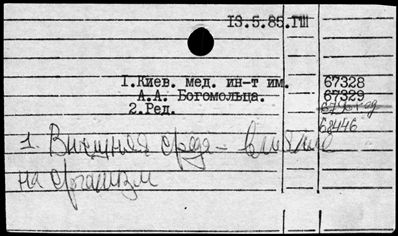 13.5.85.ГШ
1.Киев. мед. ин-т им. 67328
А.А. Богомольца. 67329
2.Ред.
68446
1. Внешняя среда – влияние
на организм